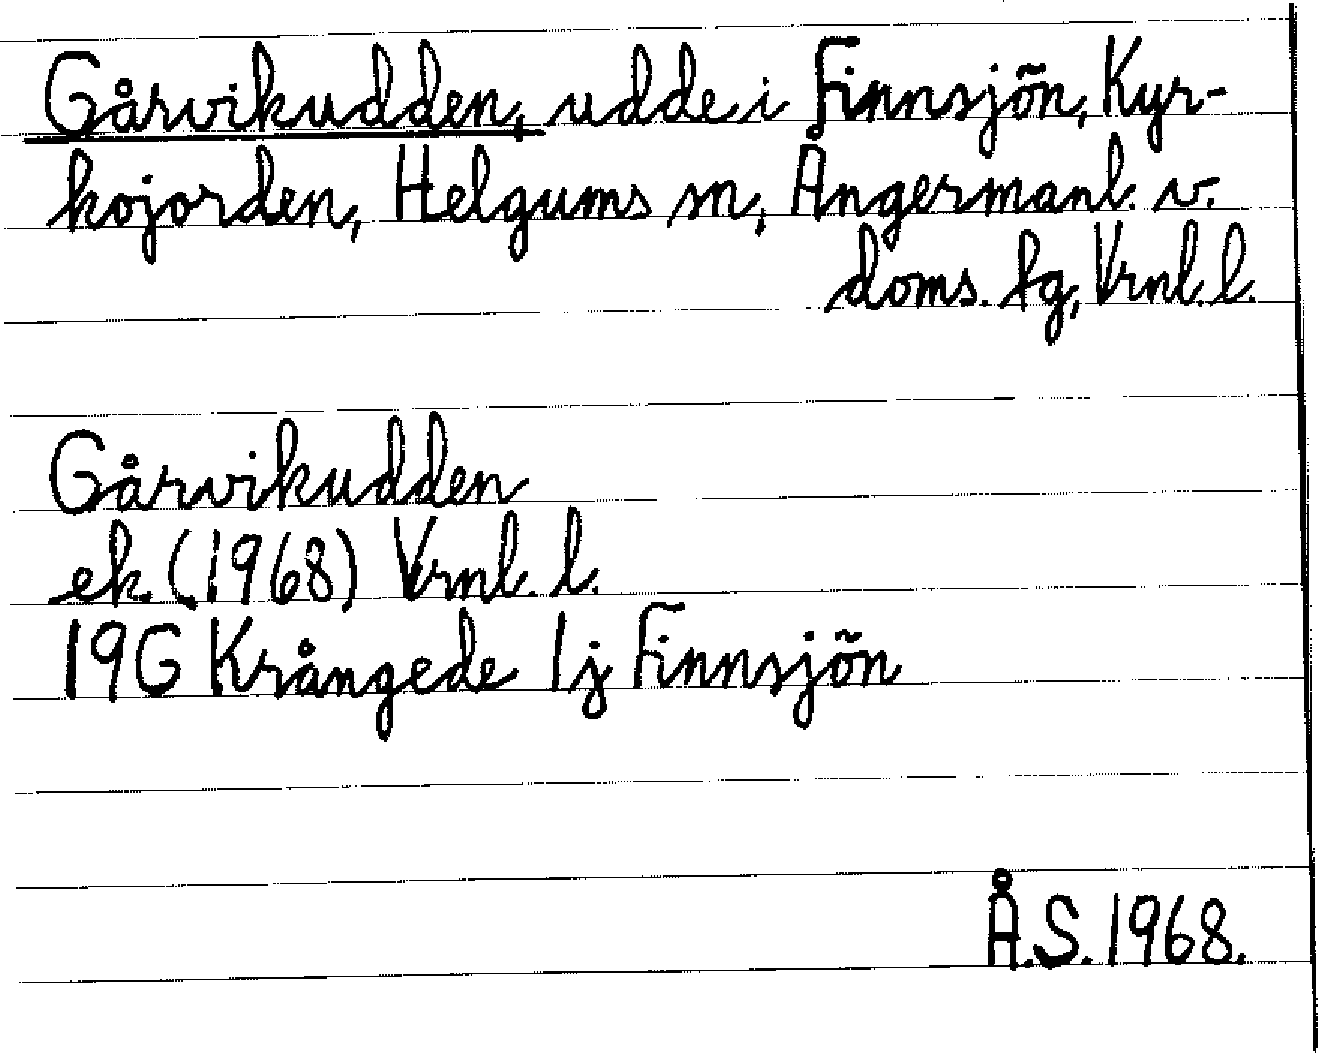 Gårvikudden, udde i Finnsjön, Kyr-
kojorden, Helgums sn, Ångermanl. v.
doms. fg, Vrnl. l.
Gårvikudden
ek. (1968) Vrnl. l.
19G Krångede 1j Finnsjön
Å.S. 1968.